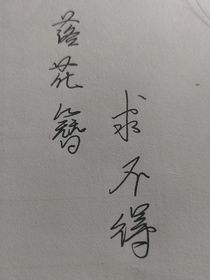 落花簪
求不得